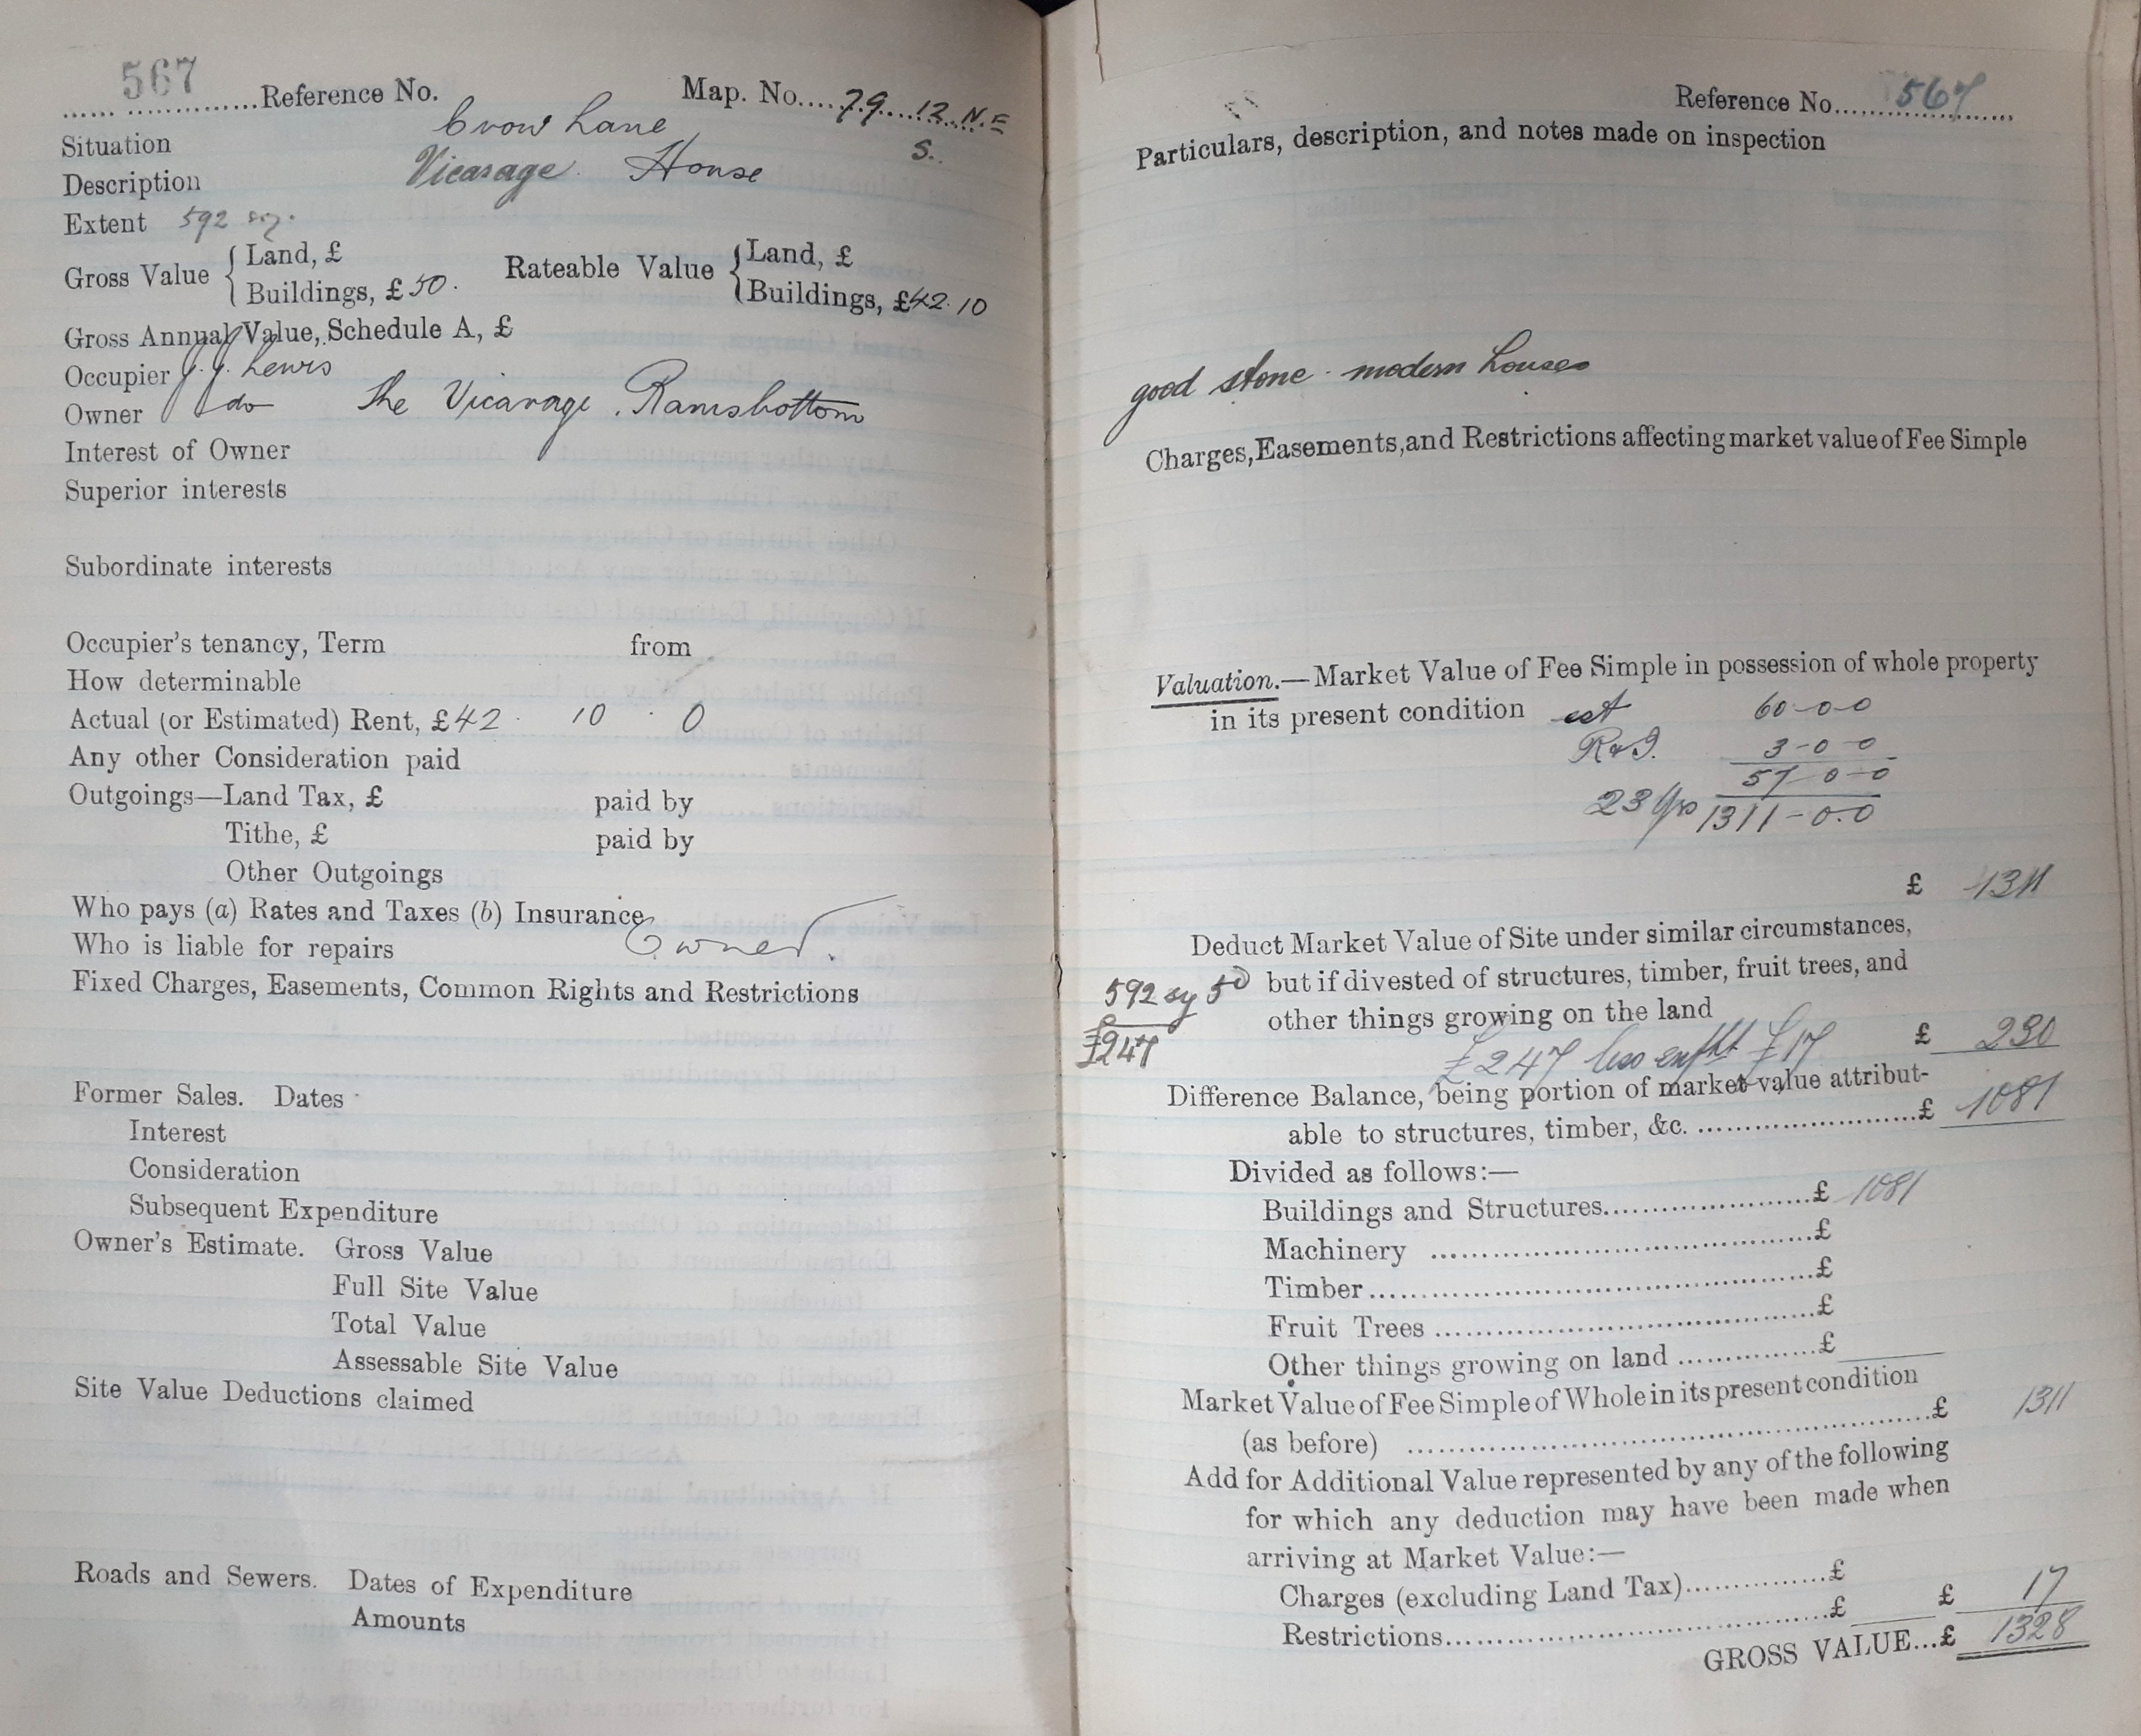 567
Reference No. Map. No. 79 12 N.E
S.
Situation Crow Lane
Description Vicarage House
Extent 592 sq.
Gross Value { Land, £ Rateable Value { Land, £
Buildings, £ 50. Buildings, £ 42.10
Gross Annual Value, Schedule A, £
Occupier J. J. Lewis
Owner do The Vicarage, Ramsbottom
Interest of Owner
Superior interests
Subordinate interests
Occupier's tenancy, Term from
How determinable
Actual (or Estimated) Rent, £ 42 . 10 . 0
Any other Consideration paid
Outgoings—Land Tax, £ paid by
Tithe, £ paid by
Other Outgoings
Who pays (a) Rates and Taxes (b) Insurance
Who is liable for repairs Owner.
Fixed Charges, Easements, Common Rights and Restrictions
Former Sales. Dates
Interest
Consideration
Subsequent Expenditure
Owner's Estimate. Gross Value
Full Site Value
Total Value
Assessable Site Value
Site Value Deductions claimed
Roads and Sewers. Dates of Expenditure
Amounts
Reference No. 567
Particulars, description, and notes made on inspection
good stone modern houses
Charges, Easements, and Restrictions affecting market value of Fee Simple
Valuation.—Market Value of Fee Simple in possession of whole property
in its present condition est 60-0-0
R & I. 3-0-0
57-0-0
23 Yrs 1311-0-0
£ 1311
Deduct Market Value of Site under similar circumstances,
592 sy 5D but if divested of structures, timber, fruit trees, and
other things growing on the land
£247 £247 less £17 £ 230
Difference Balance, being portion of market value attribut-
able to structures, timber, &c. £ 1081
Divided as follows:—
Buildings and Structures £ 1081
Machinery £
Timber £
Fruit Trees £
Other things growing on land £
Market Value of Fee Simple of Whole in its present condition
(as before) £ 1311
Add for Additional Value represented by any of the following
for which any deduction may have been made when
arriving at Market Value:—
Charges (excluding Land Tax) £
Restrictions £ £ 17
GROSS VALUE...£ 1328